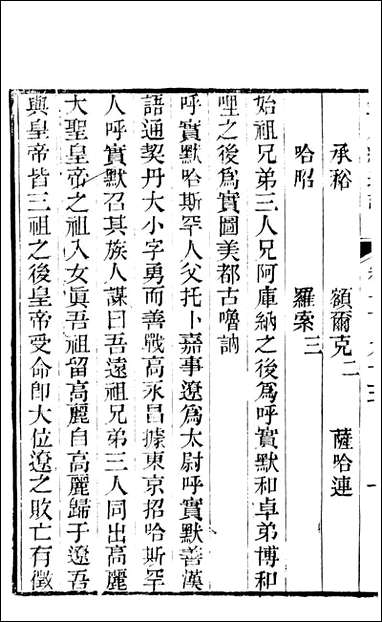 承裕 額爾克二 薩哈連
哈昭 羅索三
始祖兄弟三人兄阿庫納之後爲呼實默和卓弟博和
哩之後爲實圖美都古嚕訥
呼實默哈斯罕人父托卜嘉事遼爲太尉呼實默善漢
語通契丹大小字勇而善戰高永昌據東京招哈斯罕
人呼實默召其族人謀曰吾遠祖兄弟三人同出高麗
大聖皇帝之祖入女眞吾祖留高麗自高麗歸于遼吾
與皇帝皆三祖之後皇帝受命卽大位遼之敗亡有徵